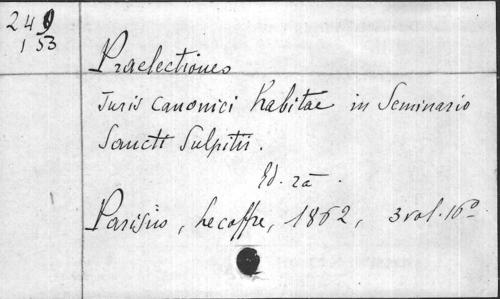 249
153
Praelectiones
Juris canonici habitae in Seminario
Sancti Sulpitii.
Ed. 2a.
Parisiis, Lecoffre, 1862, 3 vol. 16o